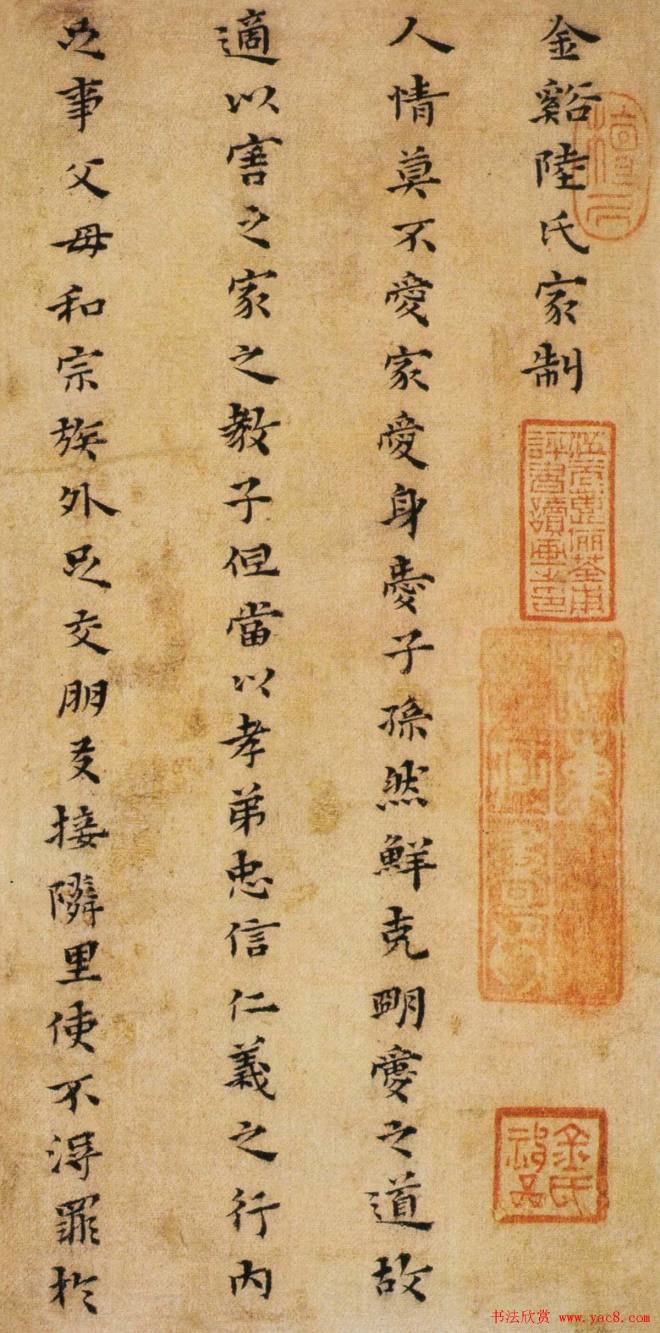 金谿陸氏家制
人情莫不愛家愛身愛子孫然鮮克明愛之道故
適以害之家之教子但當以孝弟忠信仁義之行內
足事父母和宗族外足交朋友接隣里使不得罪於
金氏
书法欣赏 www.yac8.com